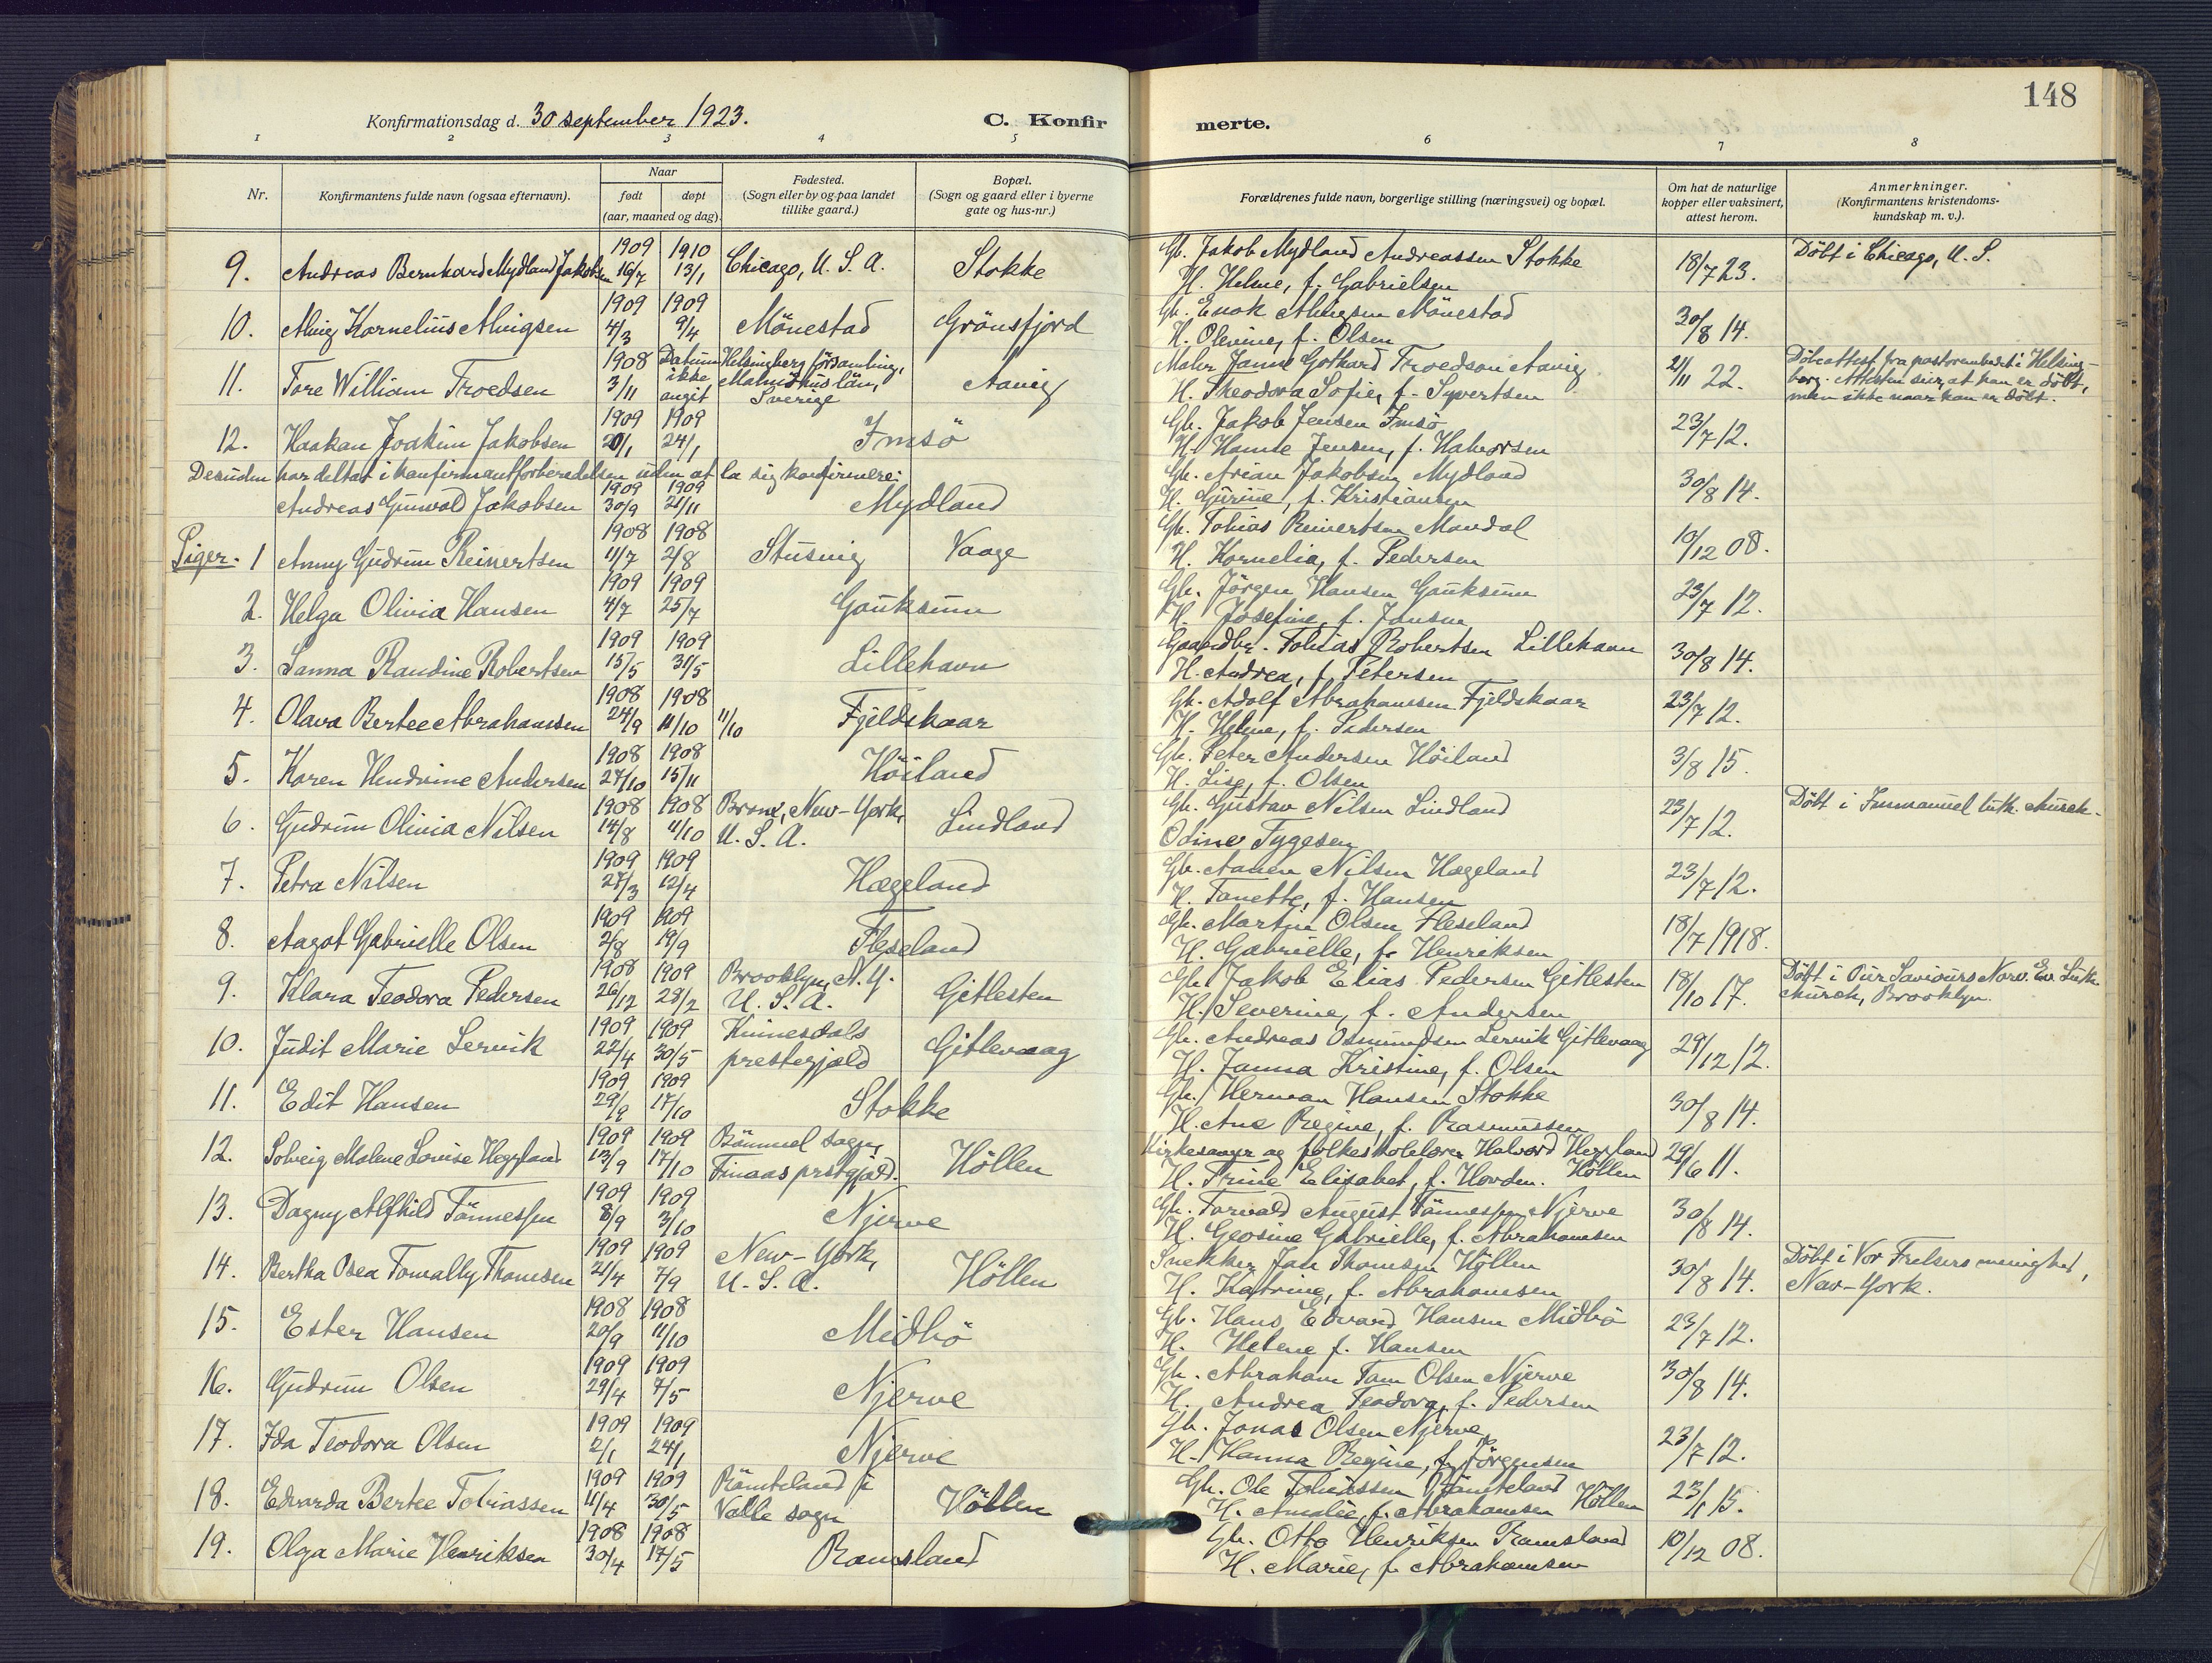 148
Konfirmationsdag d. 30 september 1923.
C. Konfir
merte.
1 2 3 4 5 6 7 8
Nr.
Konfirmantens fulde navn (ogsaa efternavn).
Naar
født døpt
(aar, maaned og dag).
Fødested.
(Sogn eller by og paa landet
tillike gaard.)
Bopæl.
(Sogn og gaard eller i byerne
gate og hus-nr.)
Forældrenes fulde navn, borgerlige stilling (næringsvei) og bopæl.
Om hat de naturlige
kopper eller vaksinert,
attest herom.
Anmerkninger.
(Konfirmantens kristendoms-
kundskap m. v.).
1909 1910 Gb. Jakob Mydland Andreassen Stokke Döbt i Chicago, U. S.
9. Andreas Bernhard Mydland Jakobsen 16/7 13/1 Chicago, U. S. A. Stokke H. Helene, f. Gabrielsen 18/7 23.
1909 1909 Gb. Enok Alvigsen Mönestad
10. Alvig Kornelius Alvigsen 4/3 9/4 Mönestad Grönsfjord H. Olevine, f. Olsen 30/8 14.
1908 Datum Helsingborg församling, Maler Janne Gothard Troedson Aavig Döbeattest fra pastorembedet i Helsing-
11. Tore William Troedsen 3/11 ikke Malmöhus län, Aavig 21/11 22. borg. Attesten siger, at han er döbt,
angit Sverige H. Theodora Sofie, f. Syvertsen men ikke naar han er döbt.
1909 1909 Gb. Jakob Jensen Imsö
12. Haakan Joakim Jakobsen 20/1 24/1 Imsö H. Hanne Jensen, f. Halvorsen 23/7 12.
Desuden har deltat i konfirmantforberedelsen uten at la sig konfirmere: Gb. Arian Jakobsen Mydland
1909 1909
Andreas Gunvald Jakobsen 30/9 21/11 Mydland H. Gurine, f. Kristiansen 30/8 14.
Piger. 1908 1908 Gb. Tobias Reinertsen Mandal
1 Anny Gudrun Reinertsen 11/7 2/8 Stusvig Vaage H. Kornelia, f. Pedersen 10/12 08.
1909 1909 Gb. Jörgen Hansen Gauksum
2. Helga Olivia Hansen 4/7 25/7 Gauksum H. Josefine, f. Jansen 23/7 12.
1909 1909 Gaardbr. Tobias Robertsen Lillehavn
3. Sanna Randine Robertsen 15/5 31/5 Lillehavn H. Andrea, f. Petersen 30/8 14.
1908 1908 Gb. Adolf Abrahamsen Fjeldskaar
4. Olava Bertee Abrahamsen 24/9 11/10 11/10 Fjeldskaar H. Helene, f. Pedersen 23/7 12.
1908 1908 Gb. Peter Andersen Höiland
5. Karen Hendrine Andersen 27/10 15/11 Höiland H. Lise, f. Olsen 3/8 15.
1908 1908 Bronx, New-York, Gb. Gustav Nilsen Lindland Döbt i Immanuel luth. church.
6. Gudrun Olivia Nilsen 14/8 11/10 U. S. A. Lindland Odine Tygesen 23/7 12.
1909 1909 Gb. Aanen Nilsen Hægeland
7. Petra Nilsen 27/3 12/4 Hægeland H. Tanette, f. Hansen 23/7 12.
1909 1909 Gb. Martin Olsen Fleseland
8. Aagot Gabrielle Olsen 2/8 19/9 Fleseland H. Gabrielle, f. Henriksen 18/7 1918.
1908 1909 Brooklyn, N. Y. Gb. Jakob Elias Pedersen Gitlesten Döbt i Our Saviours Norw. Ev. Luth.
9. Klara Teodora Pedersen 26/12 28/2 U. S. A. Gitlesten H. Severine, f. Andersen 18/10 17. church, Brooklyn.
1909 1909 Kvinesdals Gb. Andreas Osmundsen Lervik Gitlevaag
10. Judit Marie Lervik 22/4 30/5 presterjæld Gitlevaag H. Janna Kristine, f. Olsen 29/12 12.
1909 1909 Gb. Herman Hansen Stokke
11. Edit Hansen 29/9 17/10 Stokke H. Ane Regine, f. Rasmussen 30/8 14.
1909 1909 Kirkesanger og folkeskolelærer Halvard Heggland
12. Solveig Malene Louise Heggland 13/9 17/10 Finaas prstgjæld. Höllen H. Trine Elisabet, f. Hovden. Höllen 29/6 11.
1909 1909 Gb. Torvald August Tönnessen Njerve
13. Dagny Alfhild Tönnessen 8/9 3/10 Njerve H. Geosine Gabrielle, f. Abrahamsen 30/8 14.
1909 1909 New-York, Snekker Jah Thomsen Höllen Döbt i Vor Frelsers menighet,
14. Bertha Osea Tomally Thomsen 21/4 7/9 U. S. A. Höllen H. Katrine, f. Abrahamsen 30/8 14. New-York.
1908 1908 Gb. Hans Edvard Hansen Midbö
15. Ester Hansen 20/9 11/10 Midbö H. Helene f. Hansen 23/7 12.
1909 1909 Gb. Abraham Tom Olsen Njerve
16. Gudrun Olsen 29/4 7/5 Njerve H. Andrea Teodora, f. Pedersen 30/8 14.
1909 1909 Gb. Jonas Olsen Njerve
17. Ida Teodora Olsen 2/1 24/1 Njerve H. Hanna Regine, f. Jörgensen 23/7 12.
1909 1909 Römteland i Gb. Ole Tobiassen Römteland Höllen
18. Edvarda Bertee Tobiassen 11/4 30/5 Valle sogn Höllen H. Amalie, f. Abrahamsen 23/1 15.
1908 1908 Gb. Otto Henriksen Ramsland
19. Olga Marie Henriksen 30/4 17/5 Ramsland H. Marie, f. Abrahamsen 10/12 08.